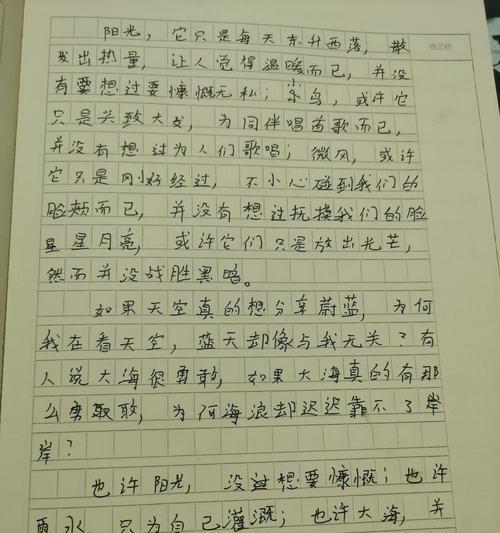 阳光，它只是每天东升西落，散
发出热量，让人觉得温暖而已，并没
有要想过要慷慨无私；小鸟，或许它
只是兴致大发，为同伴唱首歌而已，
并没有想过为人们歌唱；微风，或许
它只是刚好经过，不小心碰到我们的
脸颊而已，并没有想过抚摸我们的脸
星星月亮，或许它们只是放出光芒，
然而并没战胜黑暗。
如果天空真的想分享蔚蓝，为何
我在看天空，蓝天却像与我无关？有
人说大海很勇敢，如果大海真的有那
么勇敢，为何海浪却迟迟靠不了岸
岸？
也许阳光，没过想要慷慨；也许
雨水，只为自己灌溉；也许大海，并